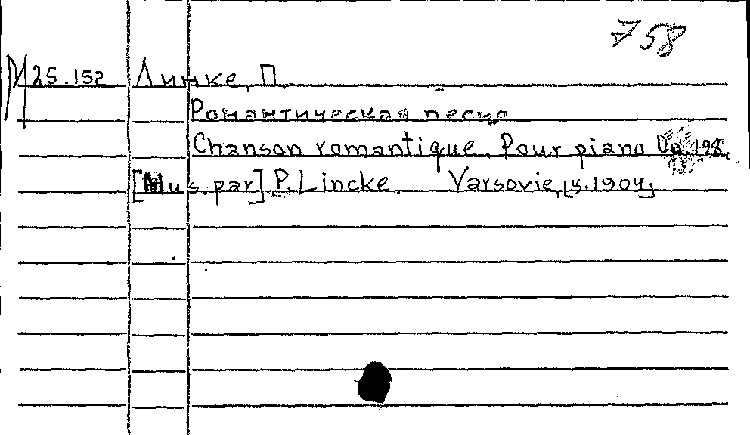 758
М 25.152 Линке, П.
Романтическая песнь
Chanson romantique. Pour piano Op. 198.
[Mus. par] P. Lincke. Varsovie, [s. 1904]